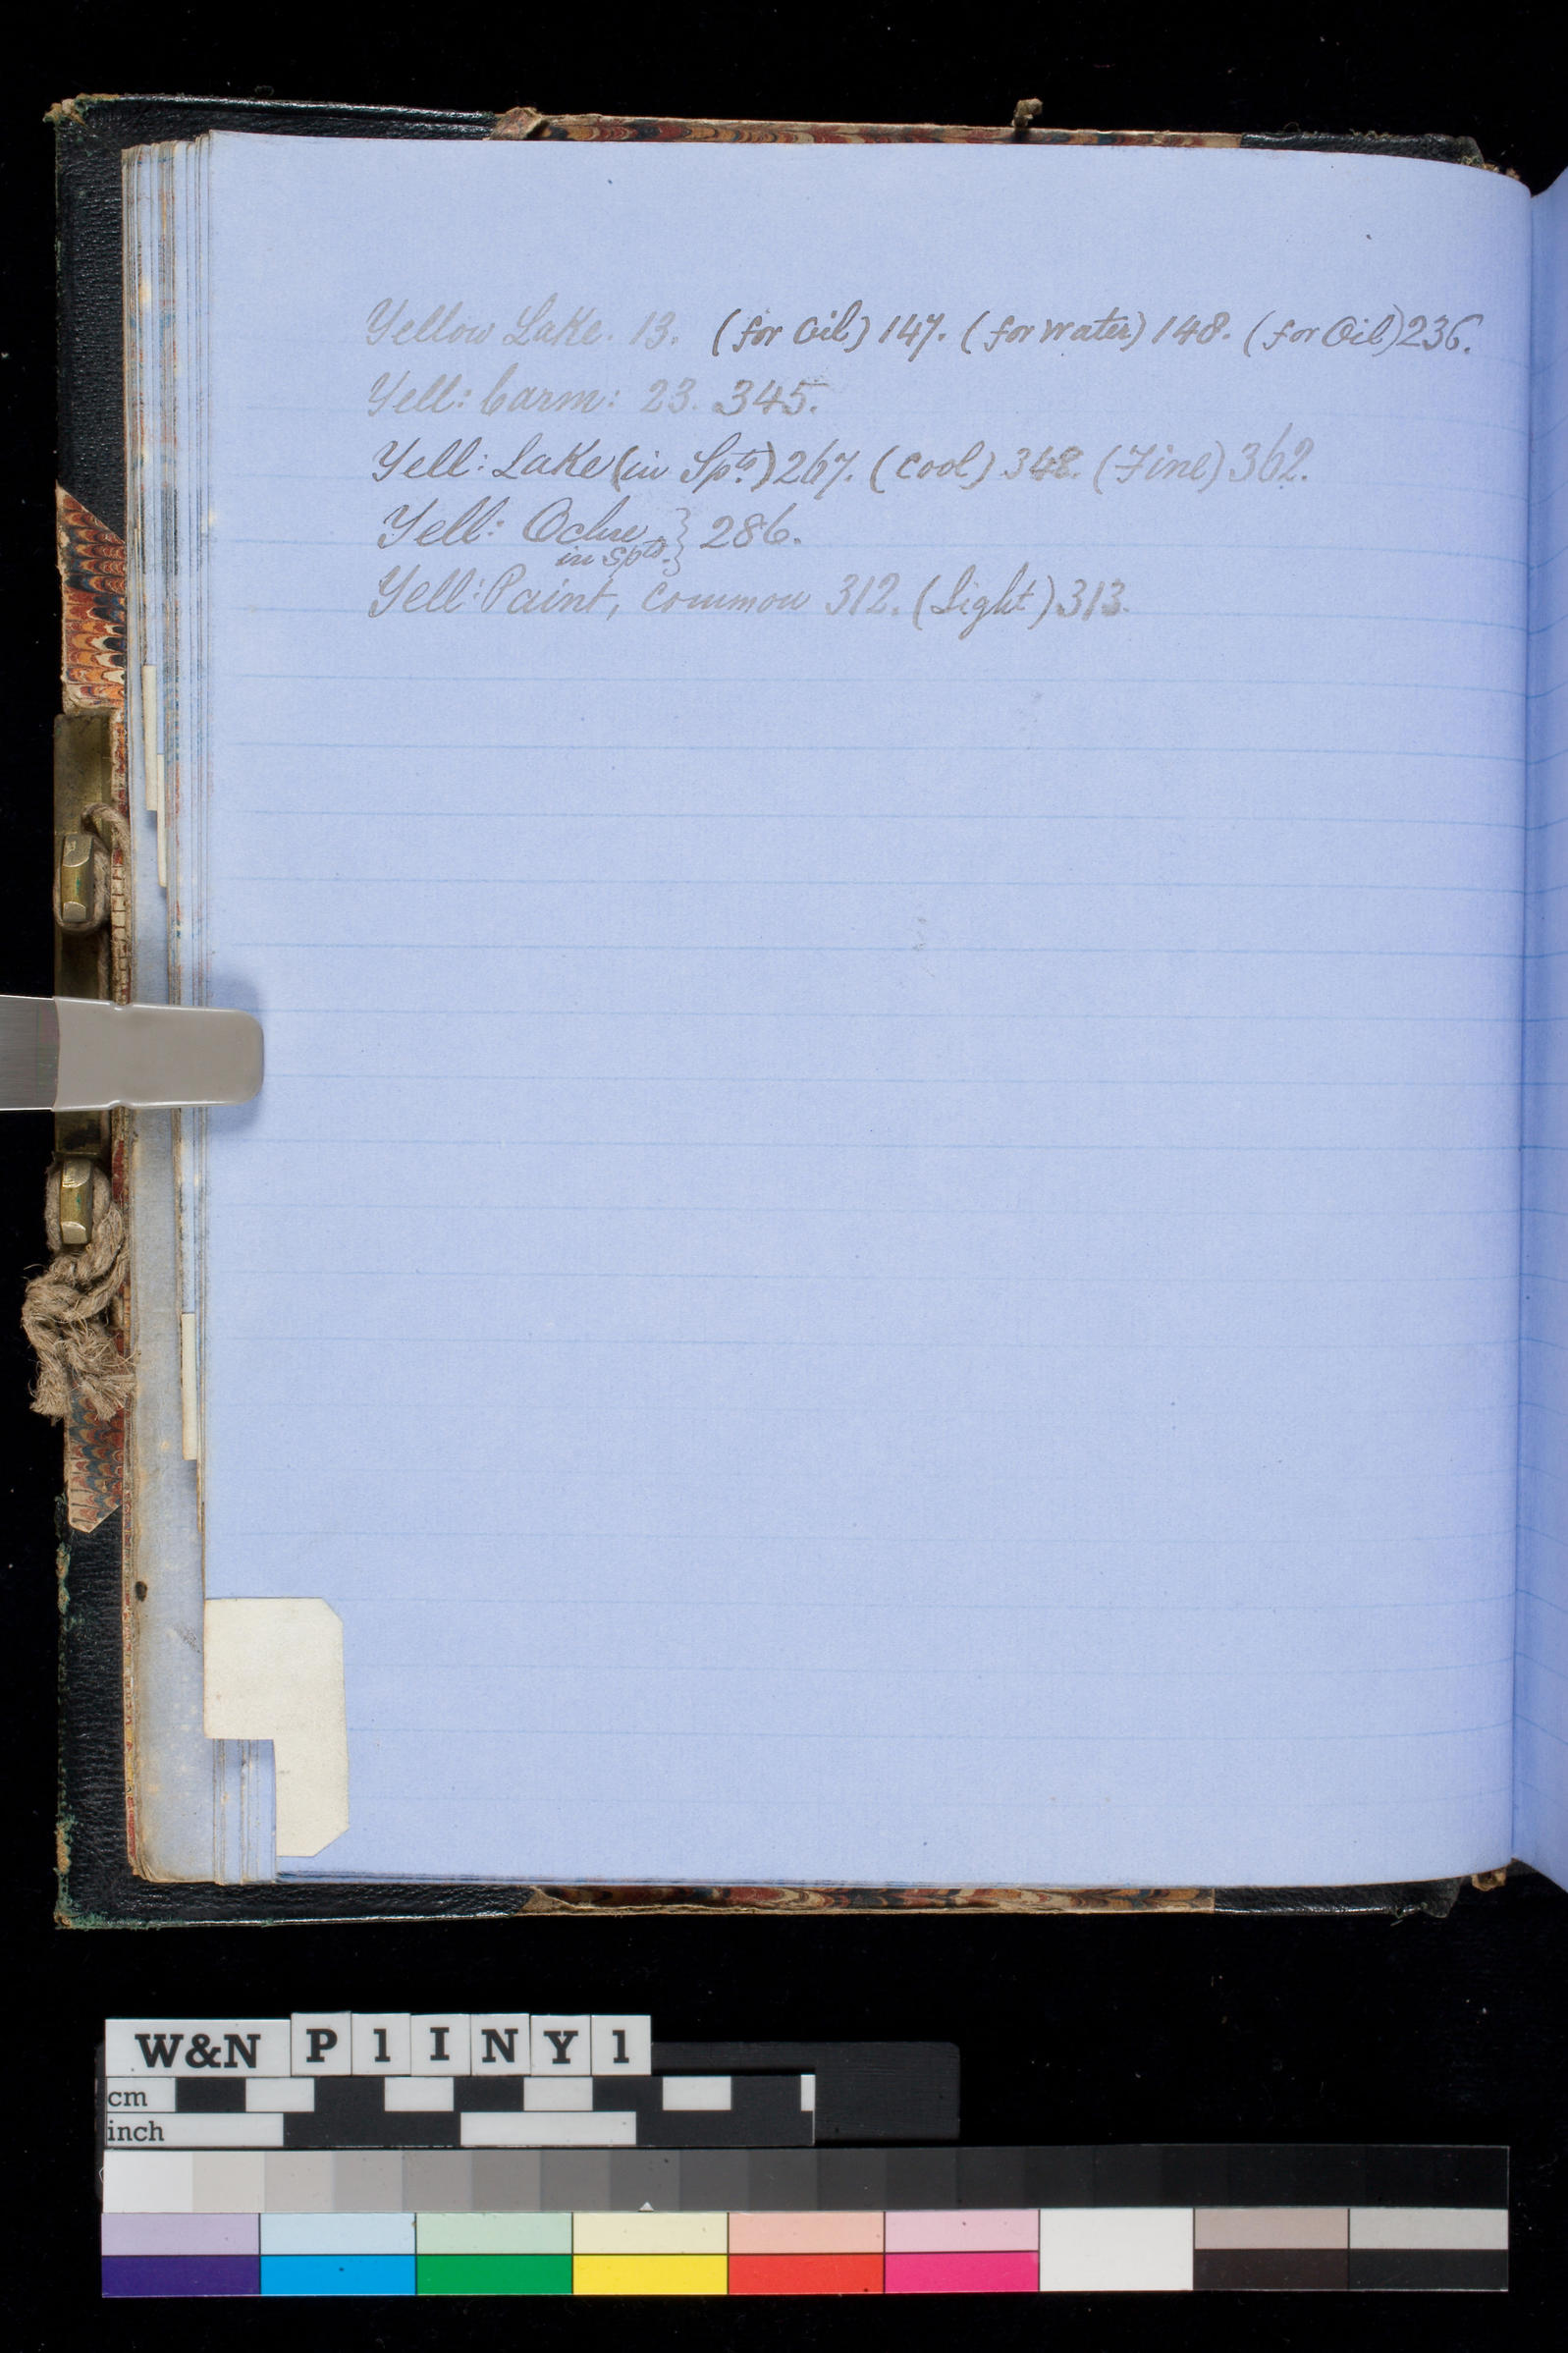 Yellow Lake. 13. (for Oil) 147. (for Water) 148. (for Oil) 236.
Yell: Carm: 23. 345.
Yell: Lake (in Spts) 267. (Cool) 348. (Fine) 362.
Yell: Ochre } 286.
in spts.
Yell: Paint, common 312. (Light) 313.
W&N P1INY1
cm
inch